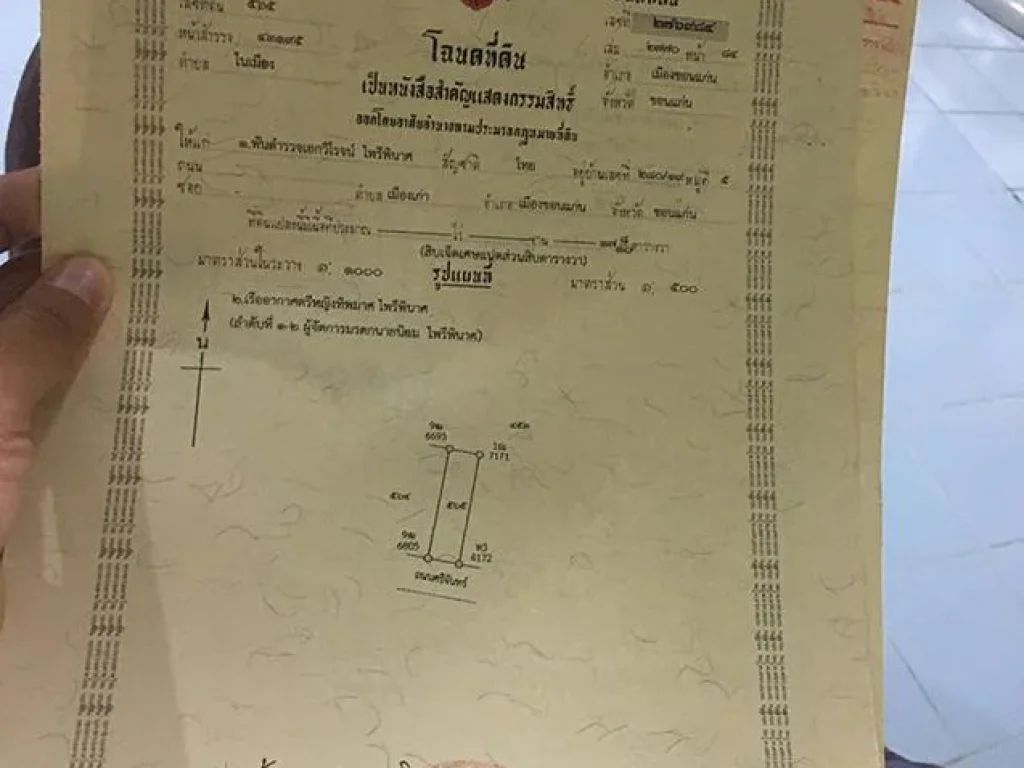 เลขที่ดิน ๕๖๕
เลขที่ ๒๗๖๙๘๔
หน้าสำรวจ ๔๓๑๙๕
เล่ม ๒๗๗๐ หน้า ๘๔
ตำบล ในเมือง
อำเภอ เมืองขอนแก่น
จังหวัด ขอนแก่น
โฉนดที่ดิน
เป็นหนังสือสำคัญแสดงกรรมสิทธิ์
ออกโดยอาศัยอำนาจตามประมวลกฎหมายที่ดิน
ให้แก่ ๑.พันตำรวจเอกวิโรจน์ ไพรีพินาศ สัญชาติ ไทย อยู่บ้านเลขที่ ๒๘๐/๑๙ หมู่ที่ ๕
ถนน
ซอย - ตำบล เมืองเก่า อำเภอ เมืองขอนแก่น จังหวัด ขอนแก่น
ที่ดินแปลงนี้มีเนื้อที่ประมาณ ไร่ งาน ๑๗ ๘/๑๐ ตารางวา
(สิบเจ็ดเศษแปดส่วนสิบตารางวา)
มาตราส่วนในระวาง ๑: ๑๐๐๐
รูปแผนที่
มาตราส่วน ๑: ๕๐๐
๒.เรืออากาศตรีหญิงทิพมาศ ไพรีพินาศ
(ลำดับที่ ๑-๒ ผู้จัดการมรดกนายนิยม ไพรีพินาศ)
น
6693
7171
๕๖๔
๕๖๕
6805
6172
ถนนศรีจันทร์